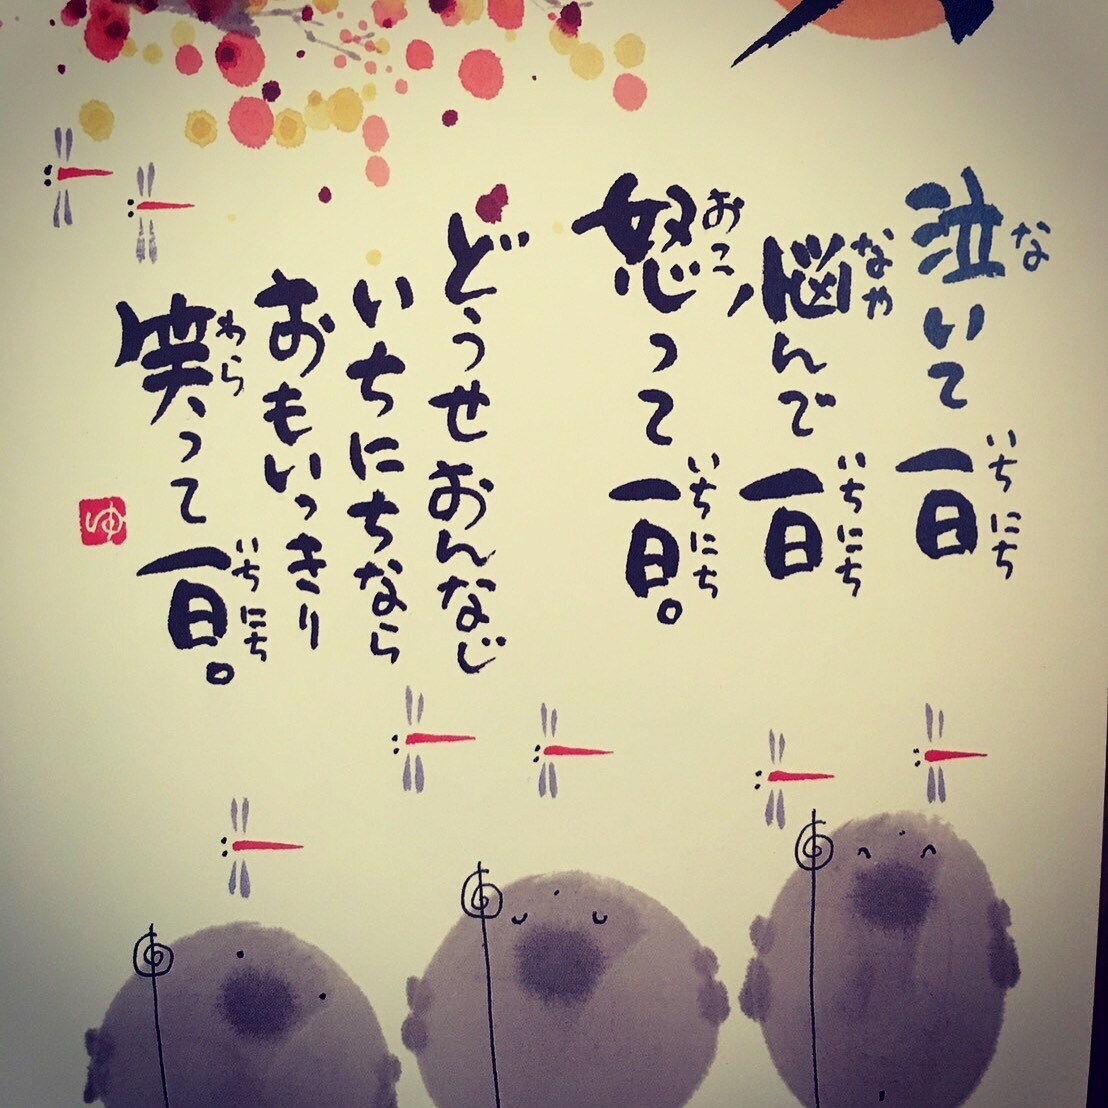 泣いて一日
悩んで一日
怒って一日。
どうせおんなじ
いちにちなら
おもいっきり
笑って一日。
な
いちにち
なや
いちにち
おこ
いちにち
わら
いちにち
ゆ